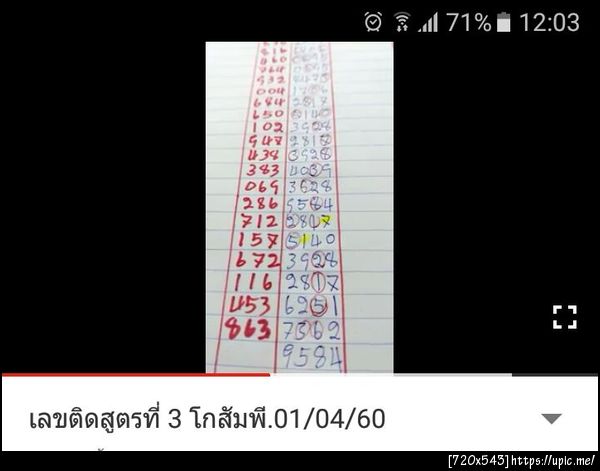 71% 12:03
932
004
684 2817
650 5140
102 3928
947 2817
438 3928
383 4039
069 3628
286 9584
712 2817
157 5140
672 3928
116 2817
453 6251
863 7362
9584
เลขติดสูตรที่ 3 โกสัมพี.01/04/60
[720x543]https://upic.me/